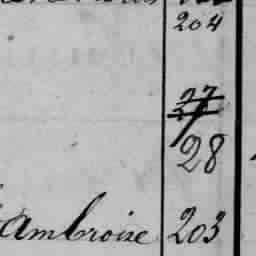 204
27
28
ambroise 203